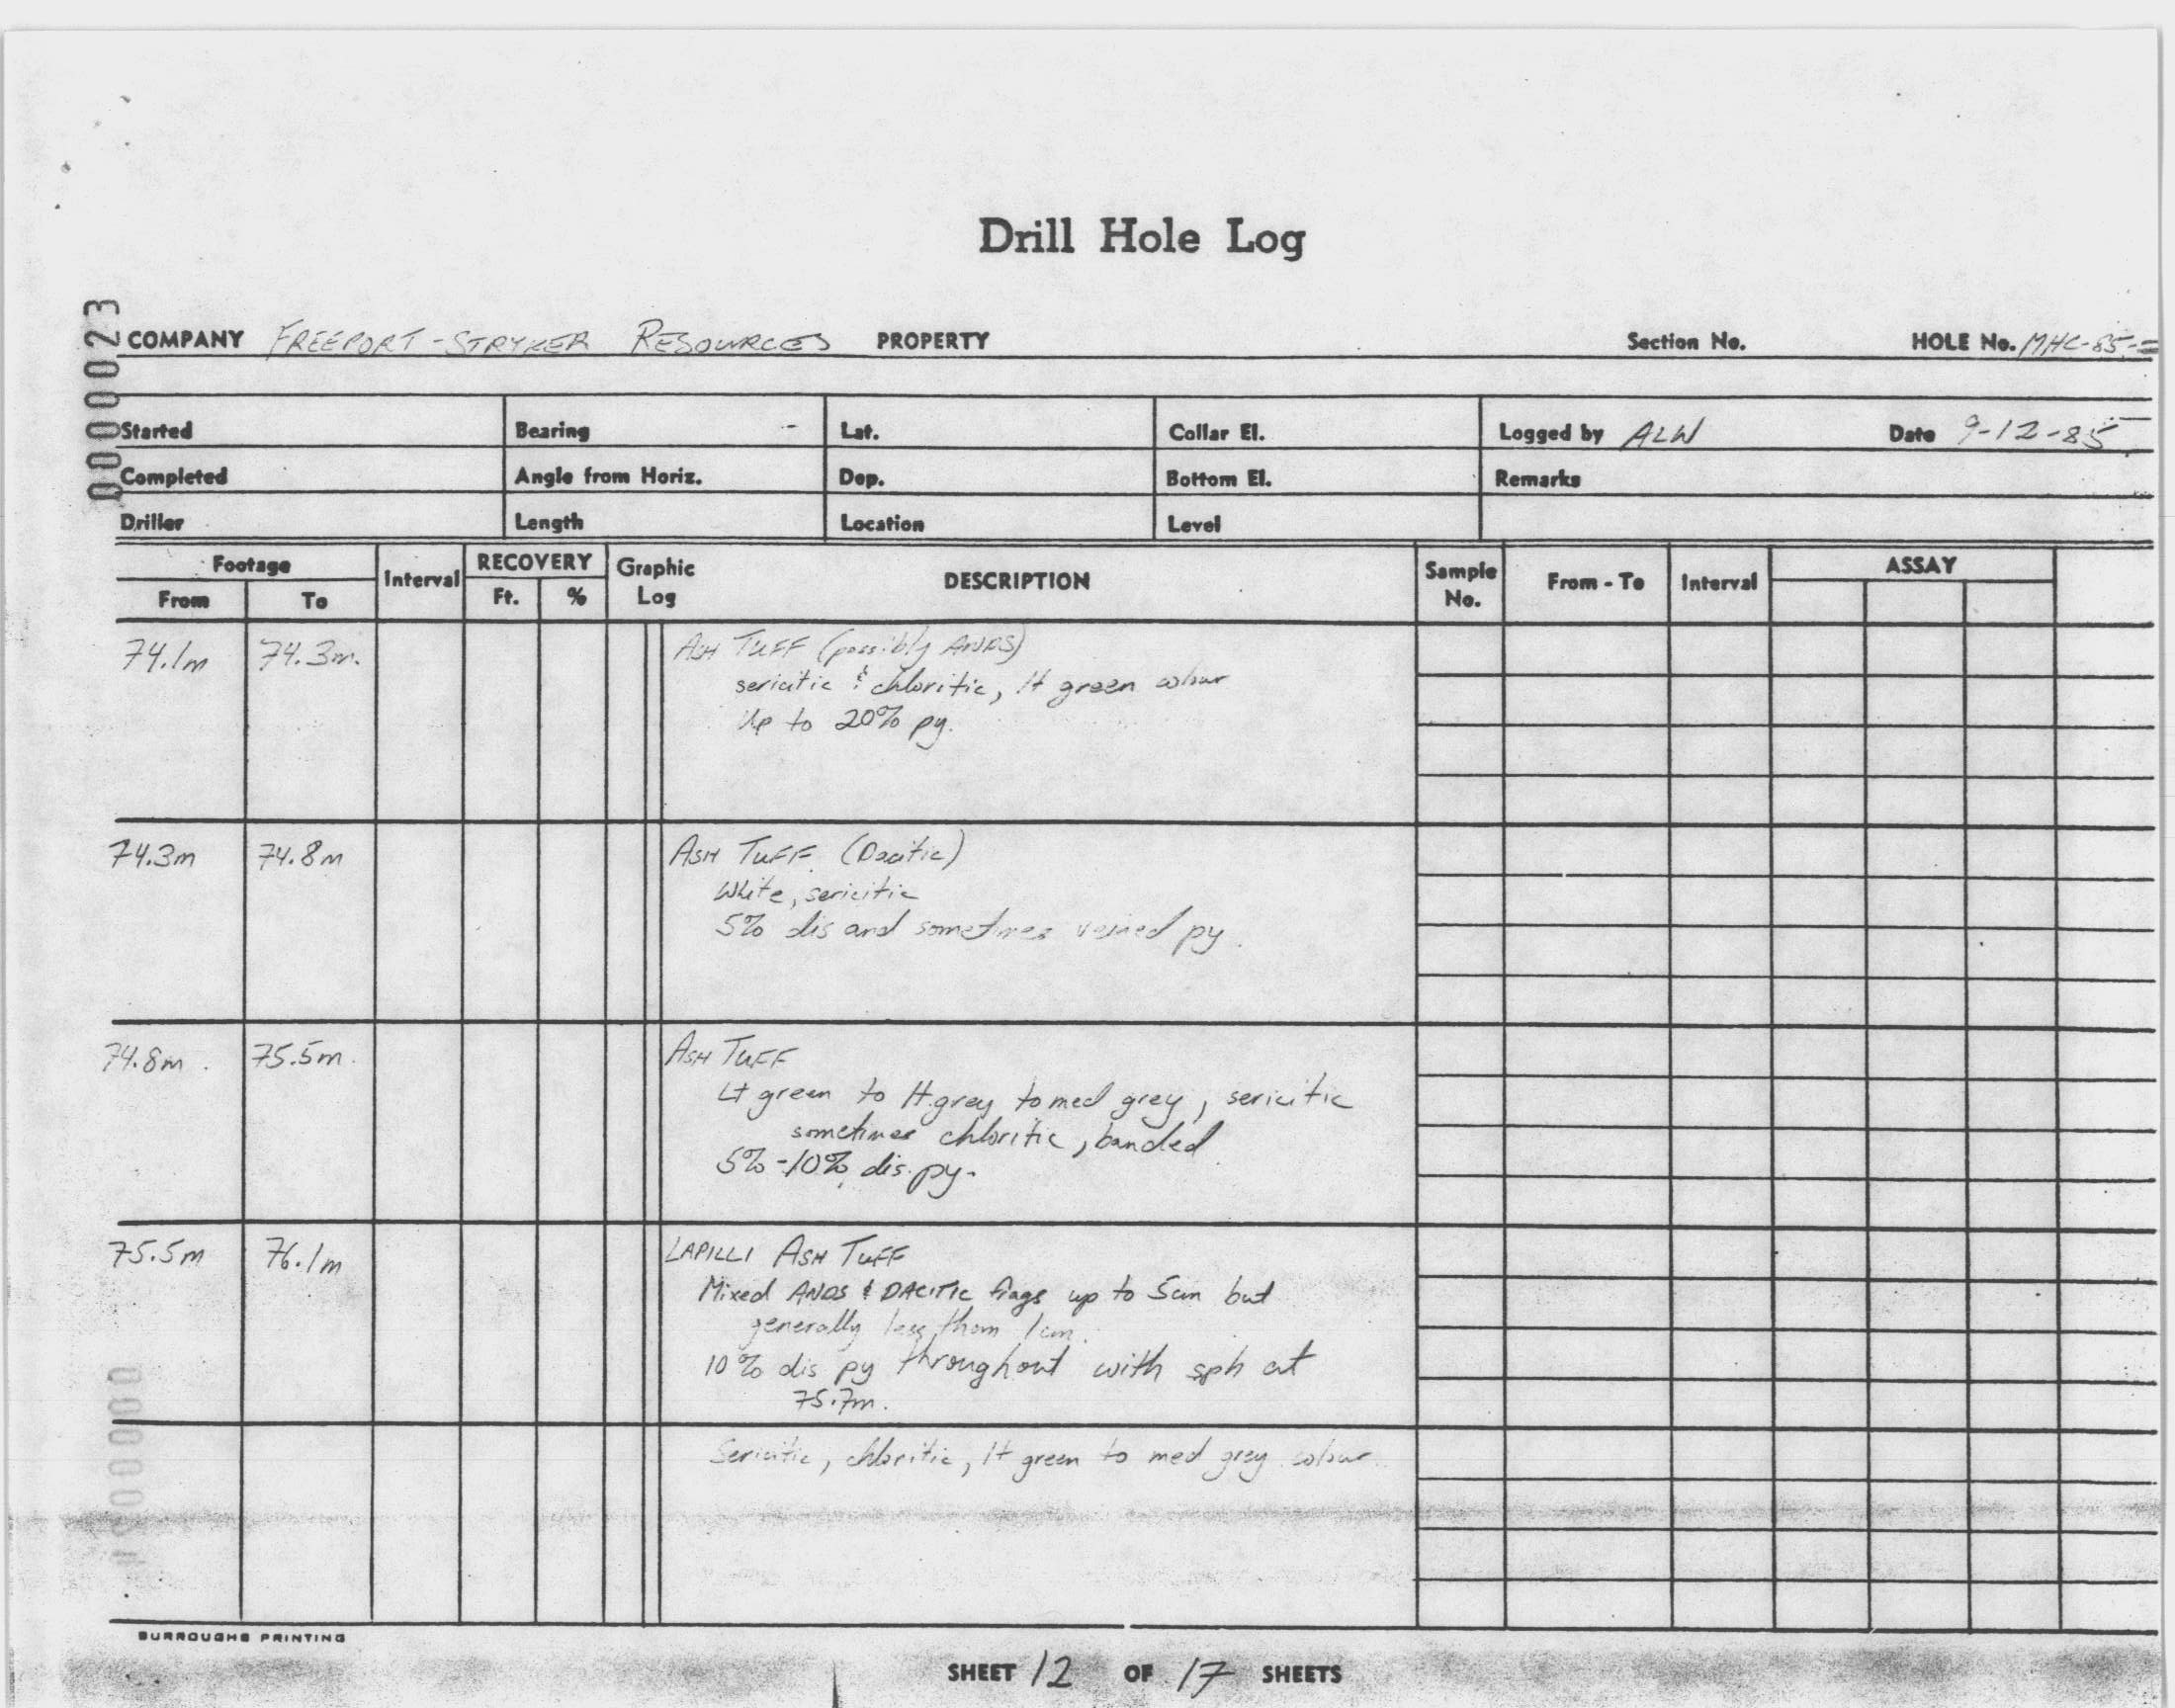 Drill Hole Log
0000023
COMPANY FREEPORT-STRYKER RESOURCES PROPERTY Section No. HOLE No. MHC-85-
Started Bearing - Lat. Collar El. Logged by ALW Date 9-12-85
Completed Angle from Horiz. Dep. Bottom El. Remarks
Driller Length Location Level
Footage Interval RECOVERY Graphic Log DESCRIPTION Sample No. From - To Interval ASSAY
From To Ft. %
74.1m 74.3m. ASH TUFF (possibly ANDS)
sericitic & chloritic, lt green colour
Up to 20% py.
74.3m 74.8m ASH TUFF (Dacitic)
White, sericitic
5% dis and sometimes veined py.
74.8m. 75.5m. ASH TUFF
Lt green to lt.grey to med grey, sericitic
sometimes chloritic, banded
5%-10% dis. py.
75.5m 76.1m LAPILLI ASH TUFF
Mixed ANDS & DACITIC frags up to 5cm but
generally less than 1cm.
10% dis py throughout with sph at
75.7m.
Sericitic, chloritic, lt green to med grey colour
BURROUGHS PRINTING
SHEET 12 OF 17 SHEETS